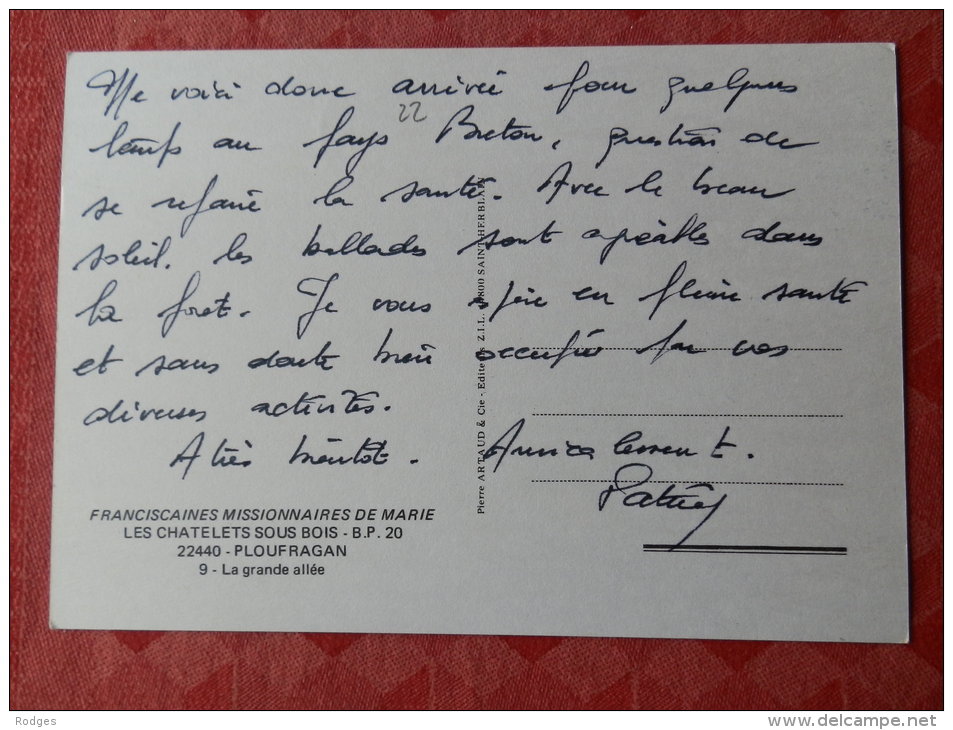 Me voici donc arrivée pour quelques
22
temps au pays Breton, question de
se refaire la santé. Avec le beau
soleil, les ballades sont agréables dans
la forêt. Je vous espère en pleine santé
et sans doute bien occupée par vos
diverses activités.
A très bientôt. Amicalement.
FRANCISCAINES MISSIONNAIRES DE MARIE
LES CHATELETS SOUS BOIS - B.P. 20
22440 - PLOUFRAGAN
9 - La grande allée
Pierre ARTAUD & Cie - Editeurs Z.I.L. 44800 SAINT-HERBLAIN
Rodges
www.delcampe.net